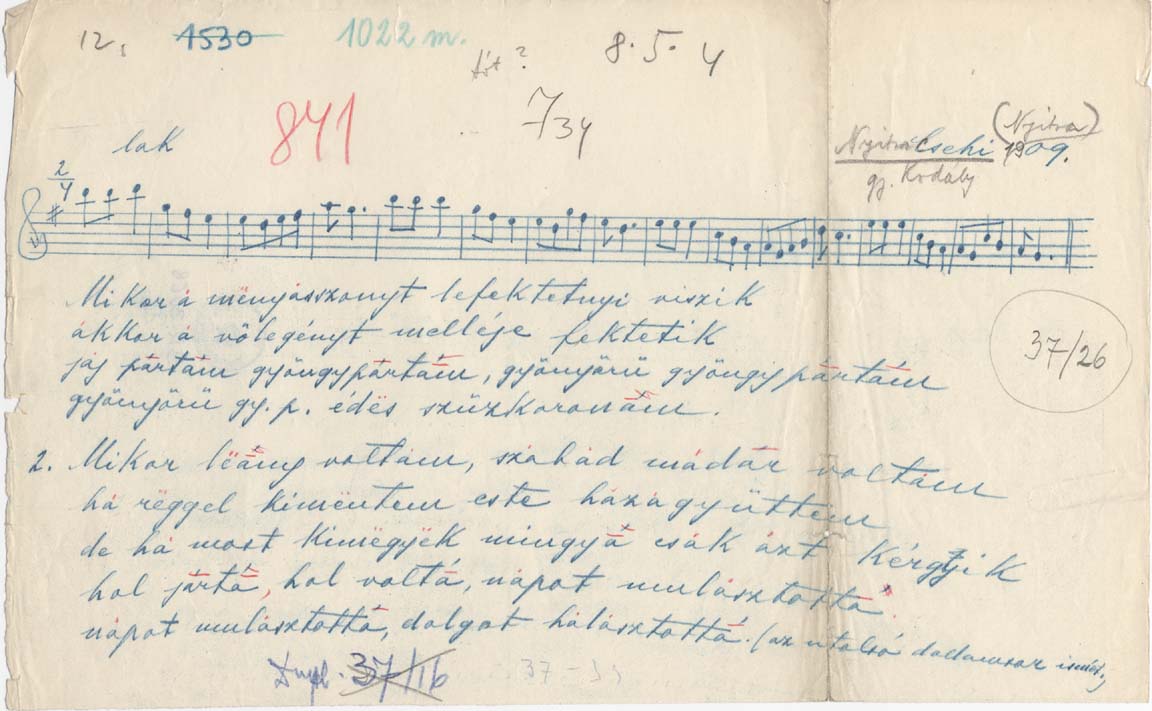 12, 1530 1022 m. 8. 5. 4
tót?
841 7/34 (Nyitra)
lak Nyitra Csehi 1909.
gy. Kodály
2/4
Mikor á mënyásszonyt lefektetnyi viszik
ákkor á vőlegényt melléje fektetik
jáj pártám gyöngypártám, gyönyörü gyöngypártám
gyönyörü gy. p. édës szüzkoronám.
37/26
2. Mikor lëány voltám, szábád mádár voltám
há rëggel kimëntem este házágyüttem
de há most kimëgyëk mingyá csák ázt
hol jártá, hol voltá, nápot mulásztottá.
nápot mulásztottá, dolgot hálásztottá. (az utolsó dallamsor ism.)
Dupl. 37/16 37-